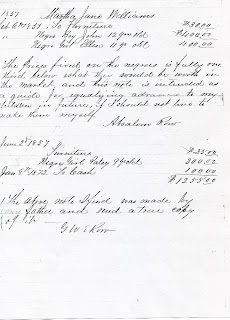 1857 Martha Jane Williams
Feb 6th 1857 To Furniture $30.00
" Negro Boy John 12 yr old $400.00
" Negro Girl Ellen 11 yr old 400.00
The prices fixed on the negroes is fully one
third below what they would be worth in
the market, and this note is intended as
a guide for equalizing advance to my
children in future, if I should not live to
make them myself.
Absalom Row
June 2d 1857
Furniture $25.00
Negro Girl 9 yr old 300.00
Jany 1872 To Cash 100.00
$1255.00
The above note was made by
my father and is a true copy
of it
G W E Row